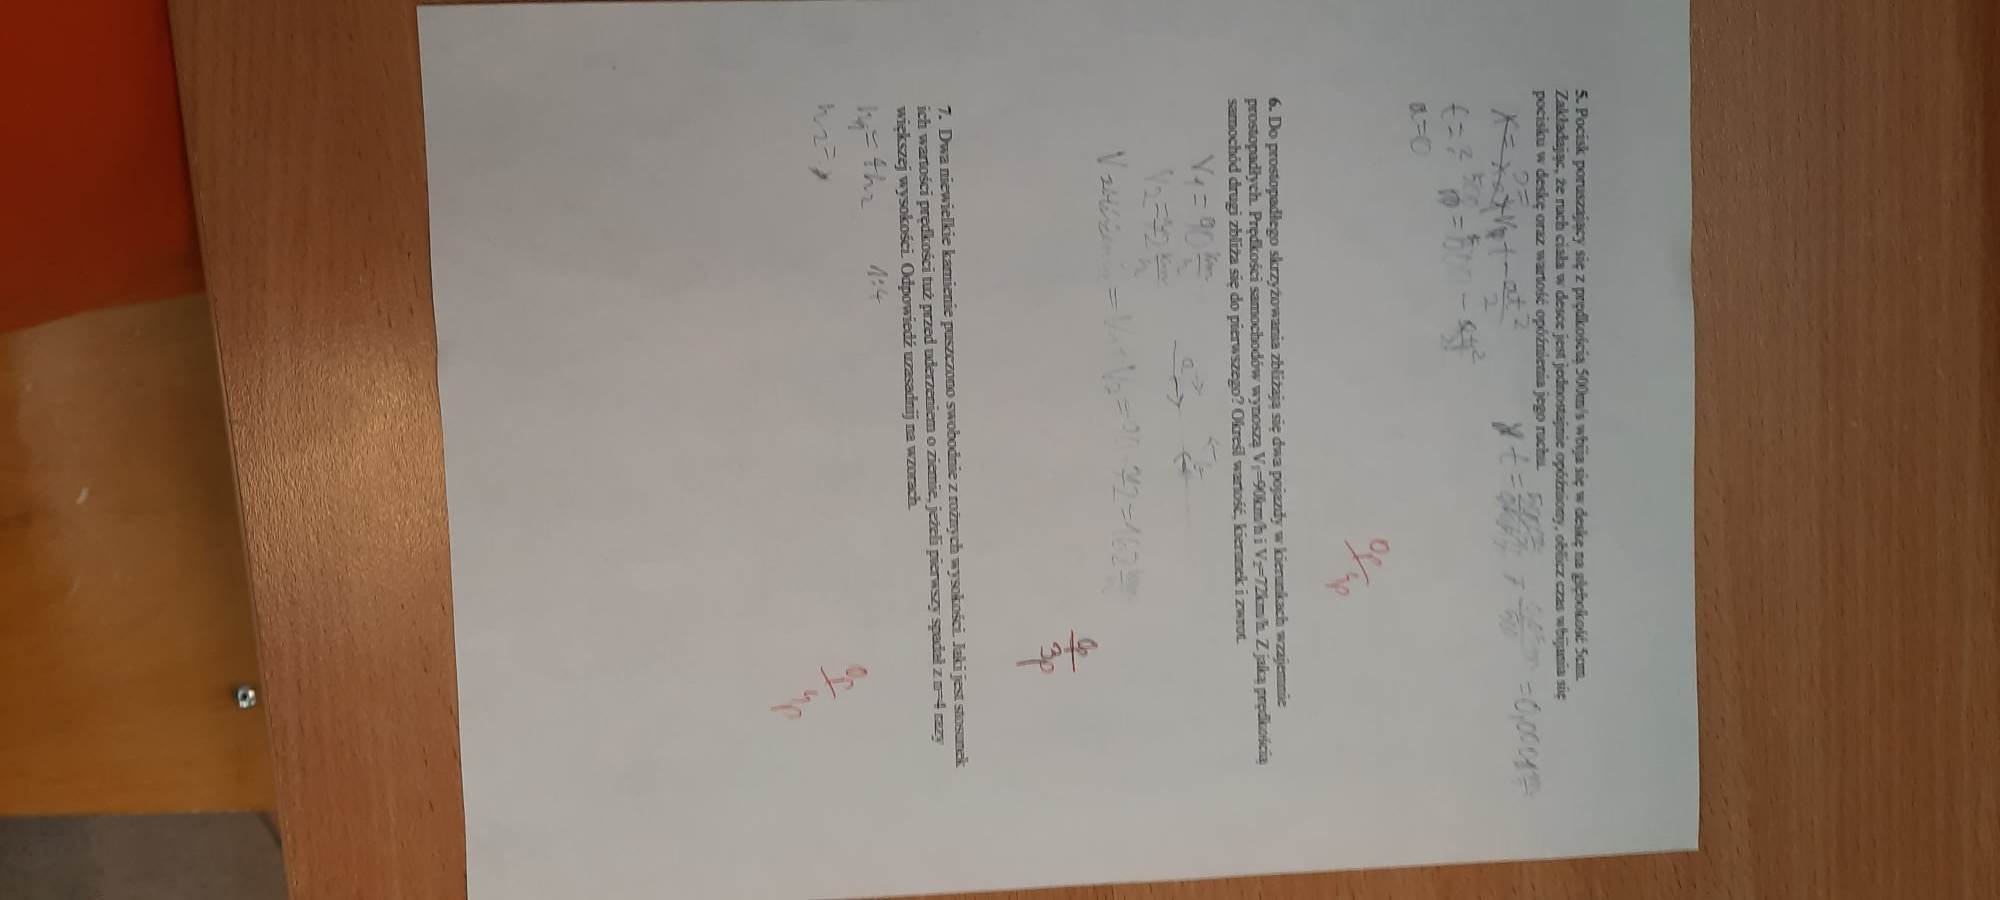 5. Pocisk poruszający się z prędkością 500m/s wbija się w deskę na głębokość 5cm.
Zakładając, że ruch ciała w desce jest jednostajnie opóźniony, oblicz czas wbijania się
pocisku w deskę oraz wartość opóźnienia jego ruchu.
t=?
a=0
0p
4p
6. Do prostopadłego skrzyżowania zbliżają się dwa pojazdy w kierunkach wzajemnie
prostopadłych. Prędkości samochodów wynoszą V₁=90km/h i V₂=72km/h. Z jaką prędkością
samochód drugi zbliża się do pierwszego? Określ wartość, kierunek i zwrot.
V₁ = 90 km/h
V₂ = 72 km/h
0p
3p
7. Dwa niewielkie kamienie puszczono swobodnie z rożnych wysokości. Jaki jest stosunek
ich wartości prędkości tuż przed uderzeniem o ziemie, jeżeli pierwszy spadał z n=4 razy
większej wysokości. Odpowiedź uzasadnij na wzorach.
h₁ = 4h₂ 1:4
h₂ =
0p
4p